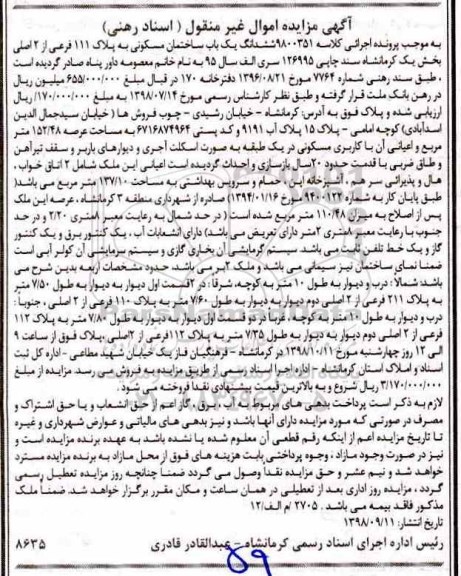 آگهی مزایده اموال غیر منقول ( اسناد رهنی )
به موجب پرونده اجرائی کلاسه ۹۸۰۰۳۵۱ ششدانگ یک باب ساختمان مسکونی به پلاک ۱۱۱ فرعی از ۲ اصلی
بخش یک کرمانشاه سند چاپی ۱۲۶۹۹۵ سری الف سال ۹۵ به نام خانم معصومه داور پناه صادر گردیده است
، طبق سند رهنی شماره ۷۷۶۴ مورخ ۱۳۹۶/۰۸/۲۱ دفترخانه ۱۷۰ در قبال مبلغ ۶۵۵/۰۰۰/۰۰۰ میلیون ریال
در رهن بانک ملت قرار گرفته و طبق نظر کارشناس رسمی مورخ ۱۳۹۸/۰۷/۱۴ به مبلغ ۳/۱۷۰/۰۰۰/۰۰۰ ریال
ارزیابی شده و پلاک فوق به آدرس: کرمانشاه - خیابان رشیدی - چوب فروش ها ( خیابان سیدجمال الدین
اسدآبادی) کوچه امامی - پلاک ۱۵ پلاک آب ۹۱۹۱ و کد پستی ۶۷۱۶۸۷۴۹۶۴ به مساحت عرصه ۱۵۲/۴۸ متر
مربع و اعیانی آن با کاربری مسکونی در یک طبقه به صورت اسکلت آجری و دیوارهای باربر و سقف تیرآهن
و طاق ضربی با قدمت حدود ۲۰سال بازسازی و احداث گردیده است اعیانی این ملک شامل ۲ اتاق خواب ،
هال و پذیرائی سر هم، آشپزخانه اپن ، حمام و سرویس بهداشتی به مساحت ۱۳۷/۱۰ متر مربع می باشد(
طبق پایان کار به شماره ۹۴۰۰۱۳۲ مورخ ۱۳۹۴/۰۱/۱۶) صادره از شهرداری منطقه ۳ کرمانشاه ، عرصه این ملک
پس از اصلاح به میزان ۱۱۰/۴۸ متر مربع شده است ( در حد شمال به رعایت معبر ۸متری ۲/۲۰ و در حد
جنوب با رعایت معبر ۸متری ۲متر دارای تعریض می باشد) دارای انشعابات آب ، یک کنتور برق و یک کنتور
گاز و یک خط تلفن ثابت می باشد. سیستم گرمایشی آن بخاری گازی و سیستم سرمایشی آن کولر آبی است
ضمنا نمای ساختمان نیز سیمانی می باشد و ملک ۲بر می باشد. حدود مشخصات اربعه بدین شرح می
باشد شمالا : درب و دیوار به طول ۱۰ متر به کوچه، شرقا : در ۲قسمت اول دیوار به دیوار به طول ۷/۵۰ متر
به پلاک ۲۱۱ فرعی از ۲ اصلی دوم دیوار به دیوار به طول ۷/۶۰ متر به پلاک ۱۱۰ فرعی از ۲ اصلی ، جنوبا :
درب و دیوار به طول ۱۰ متر به کوچه، غربا در دو قسمت اول دیوار به دیوار به طول ۷/۸۰ متر به پلاک ۱۱۲
فرعی از ۲ اصلی دوم دیوار به دیوار به طول ۷/۳۵ متر به پلاک ۱۱۲ فرعی از ۲اصلی،پلاک فوق از ساعت ۹
الی ۱۲ روز چهارشنبه مورخ ۱۳۹۸/۱۰/۱۱ در کرمانشاه - فرهنگیان فاز یک خیابان شهید مطاعی - اداره کل ثبت
اسناد و املاک استان کرمانشاه - اداره اجرا اسناد رسمی از طریق مزایده به فروش می رسد. مزایده از مبلغ
۳/۱۷۰/۰۰۰/۰۰۰ ریال شروع و به بالاترین قیمت پیشنهادی نقدا فروخته می شود.
لازم به ذکر است پرداخت بدهی های مربوط به آب ، برق، گاز اعم از حق انشعاب و یا حق اشتراک و
مصرف در صورتی که مورد مزایده دارای آنها باشد و نیز بدهی های مالیاتی و عوارض شهرداری و غیره
تا تاریخ مزایده اعم از اینکه رقم قطعی آن معلوم شده یا نشده باشد به عهده برنده مزایده است و
نیز در صورت وجود مازاد ، وجوه پرداختی بابت هزینه های فوق از محل مازاد به برنده مزایده مسترد
خواهد شد و نیم عشر و حق مزایده نقدا وصول می گردد ضمنا چنانچه روز مزایده تعطیل رسمی
گردد ، مزایده روز اداری بعد از تعطیلی در همان ساعت و مکان مقرر برگزار خواهد شد. ضمنا ملک
مذکور فاقد بیمه می باشد . ۲۷۰۵ /م الف/۱۲
تاریخ انتشار: ۱۳۹۸/۰۹/۱۱
رئیس اداره اجرای اسناد رسمی کرمانشاه - عبدالقادر قادری ۸۶۳۵
۵۹